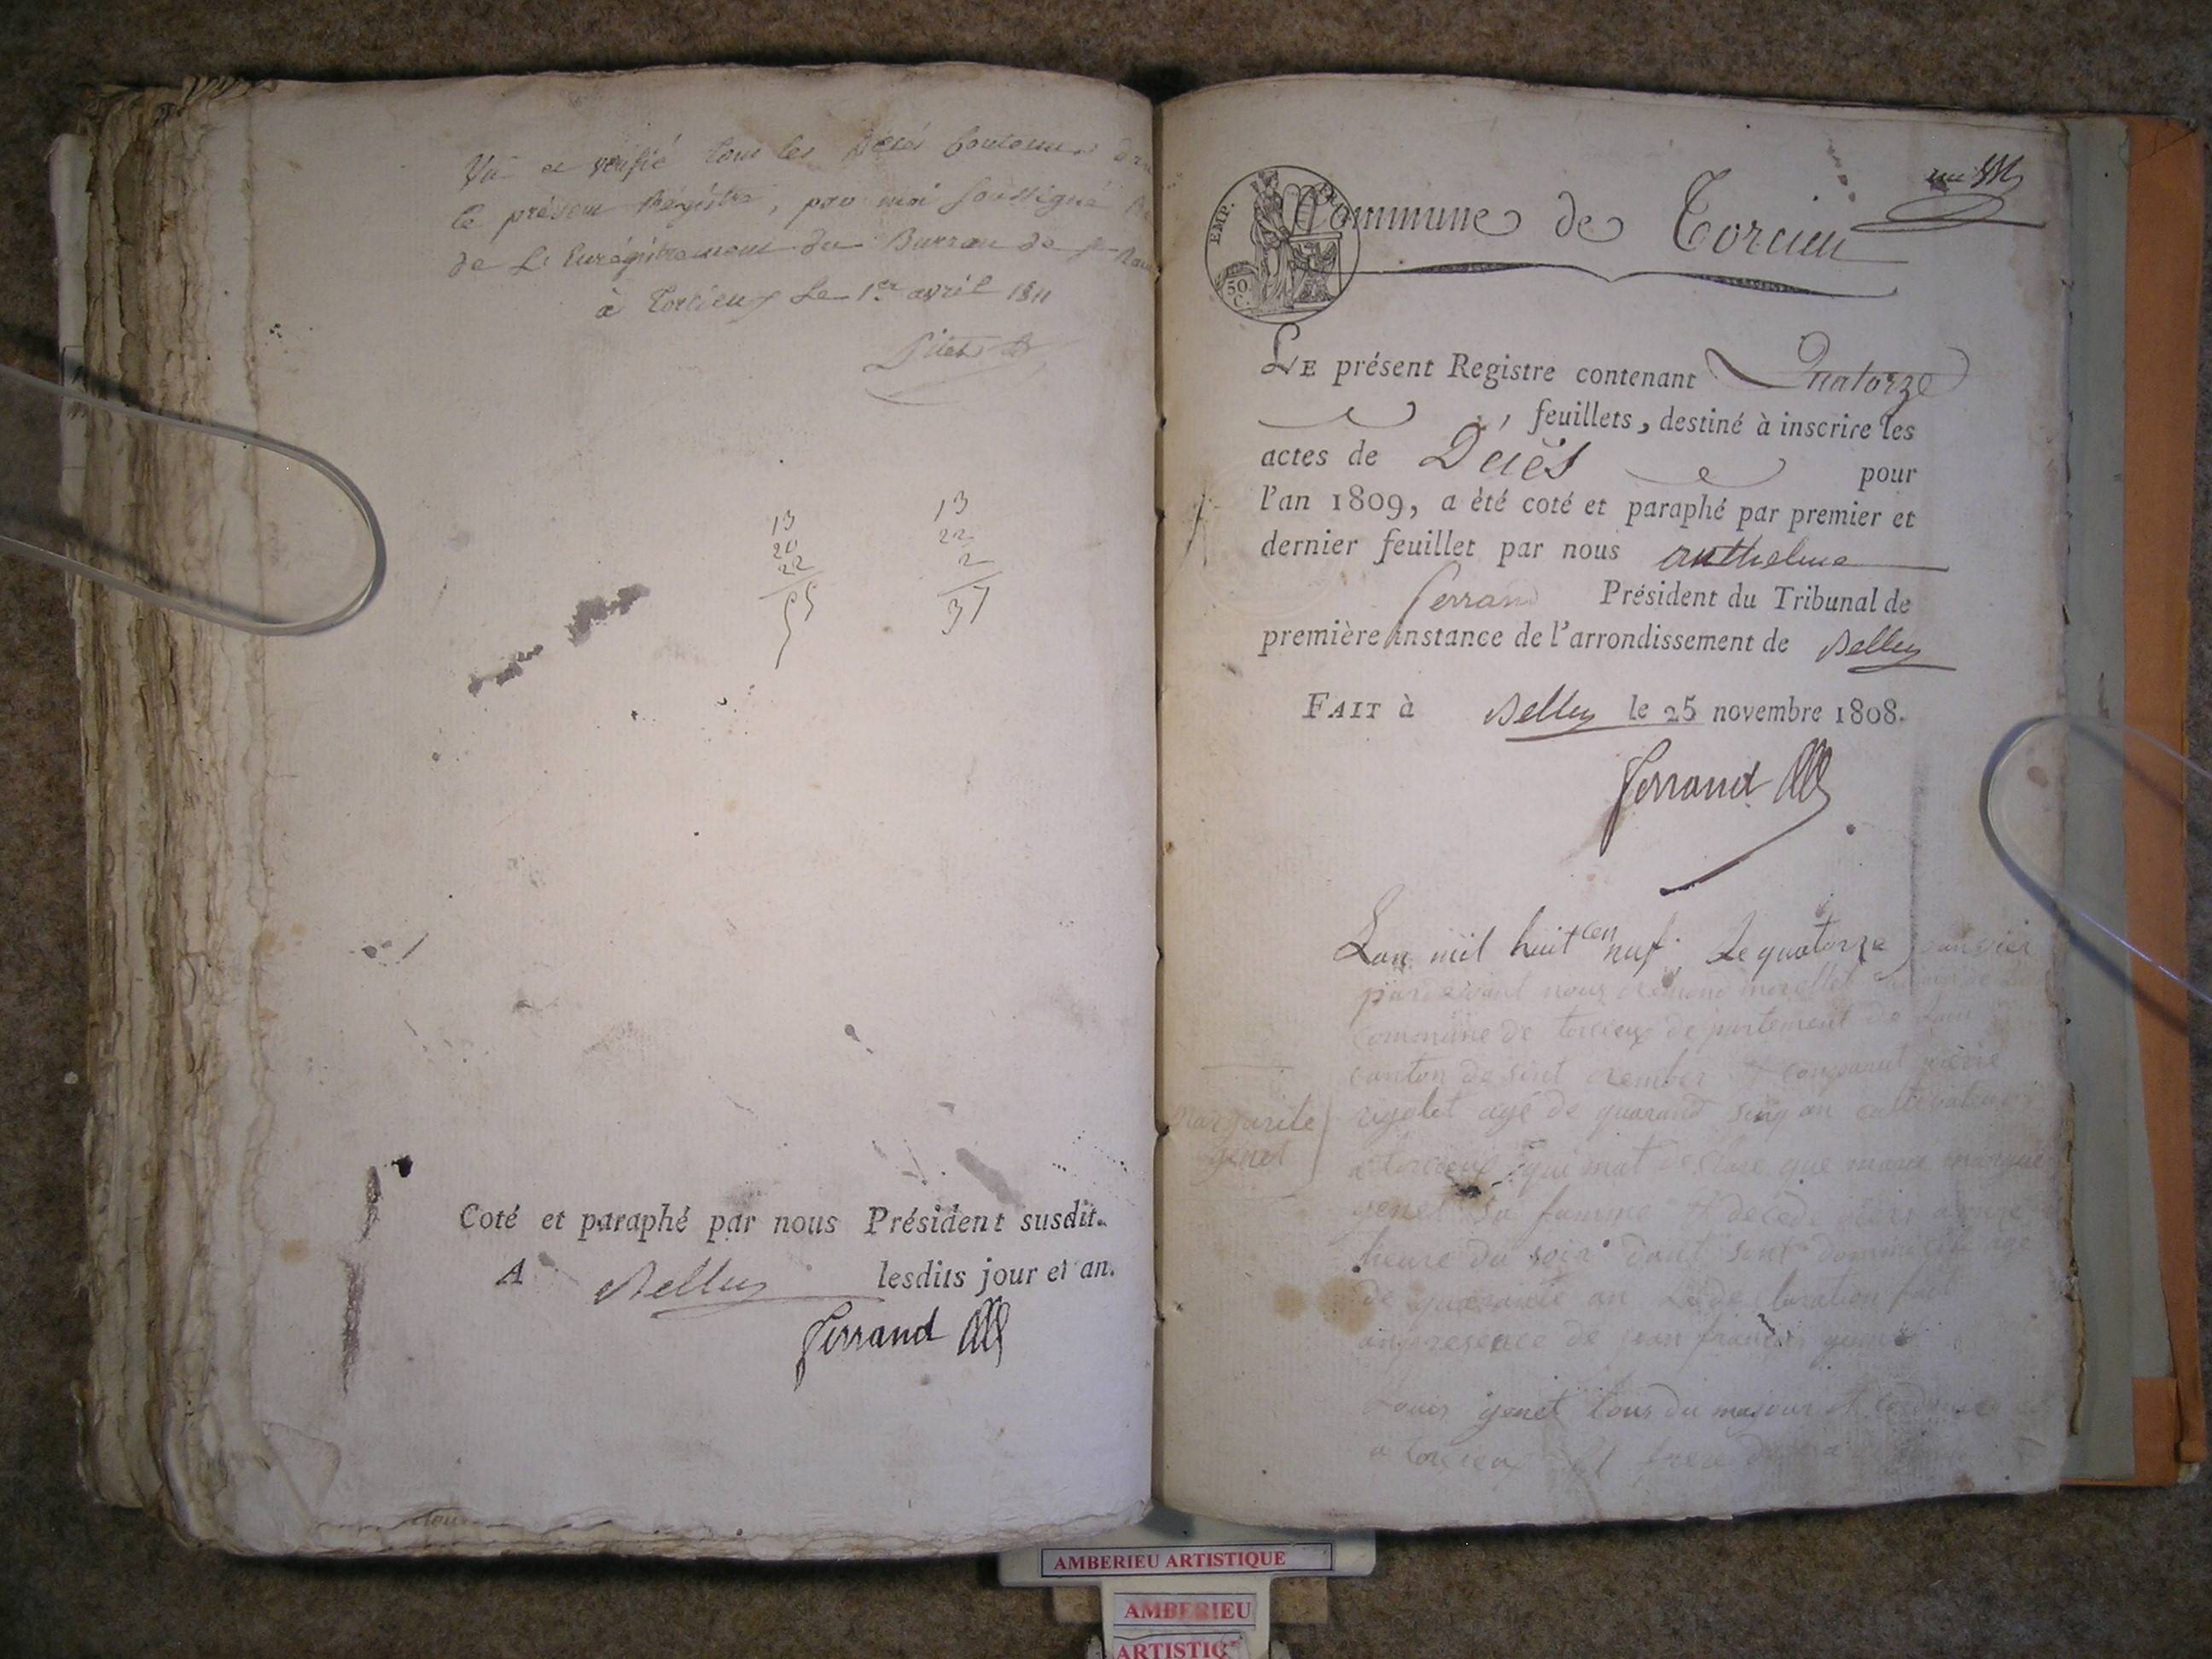 Vu et vérifié tous les Décés Contenus dans
le présent Régistre, par moi soussigné
de L'Enrégistrement du Bureau de St Ram
à Torcieux Le 1er avril 1811
13
20
22
55
13
22
2
37
Coté et paraphé par nous Président susdit.
A Belley lesdits jour et an.
Ferrand
un
EMP.
50
C.
Commune de Torcieu
LE présent Registre contenant Quatorze
feuillets, destiné à inscrire les
actes de Décés pour
l'an 1809, a été coté et paraphé par premier et
dernier feuillet par nous anthelme
ferrand Président du Tribunal de
première instance de l'arrondissement de Belley
FAIT à Belley le 25 novembre 1808.
Ferrand
Lan mil huit cen nuf. Le quatorze janvier
pardevant nous morellet
commune de torcieux de partement de Lain
canton de sint rember et comparut pierre
margarite
genet
agé de quarand sinq an cultivateur
a torcieux qui mat declare que marie margue
genet sa famme et decede
heure du soir dant sont dommicile age
de quarante an La de laration fait
anpresence de jean francois genet
Louis genet tous du majeur et
a torcieux et frere
AMBERIEU ARTISTIQUE
AMBERIEU
ARTISTIQ